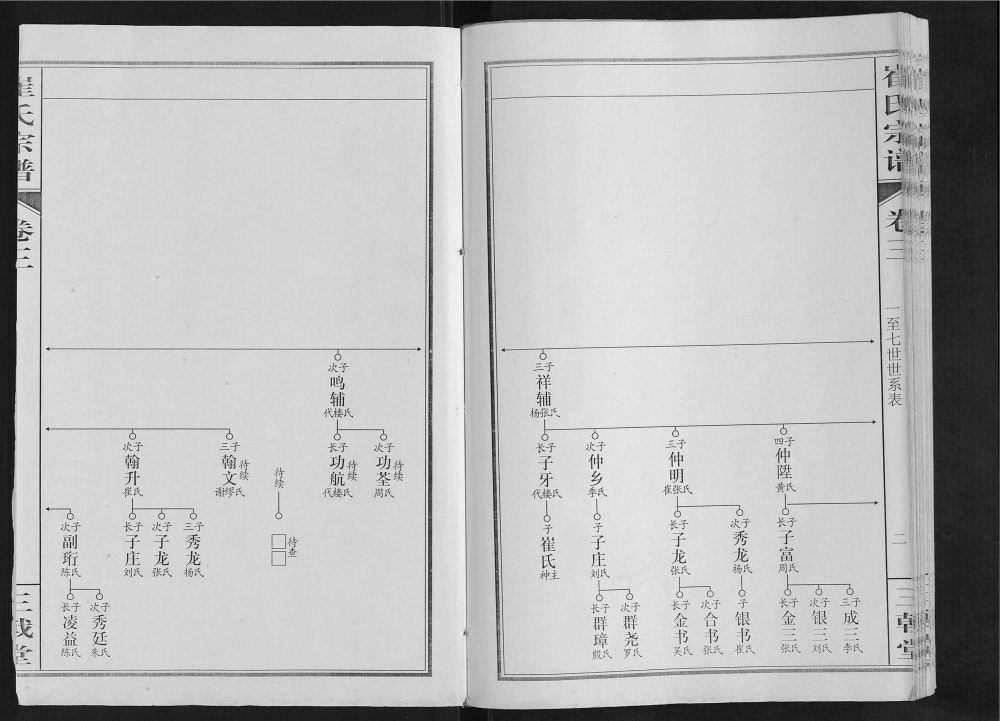 崔氏宗谱
卷三
一至七世世系表
二
三戟堂
三子
祥辅
杨张氏
长子
子牙
代楼氏
次子
仲乡
季氏
三子
仲明
崔张氏
四子
仲陞
黄氏
子
崔氏
神主
子
子庄
刘氏
长子
子龙
张氏
次子
秀龙
杨氏
长子
子富
周氏
长子
群璋
殷氏
次子
群尧
罗氏
长子
金书
吴氏
次子
合书
张氏
子
银书
崔氏
长子
金三
张氏
次子
银三
刘氏
三子
成三
李氏
崔氏宗谱
卷三
三戟堂
次子
鸣辅
代楼氏
次子
翰升
崔氏
三子
翰文
待续
谢缪氏
待续
长子
功航
待续
代楼氏
次子
功荃
待续
周氏
次子
副珩
陈氏
长子
子庄
刘氏
次子
子龙
张氏
三子
秀龙
杨氏
待查
长子
凌益
陈氏
次子
秀廷
朱氏